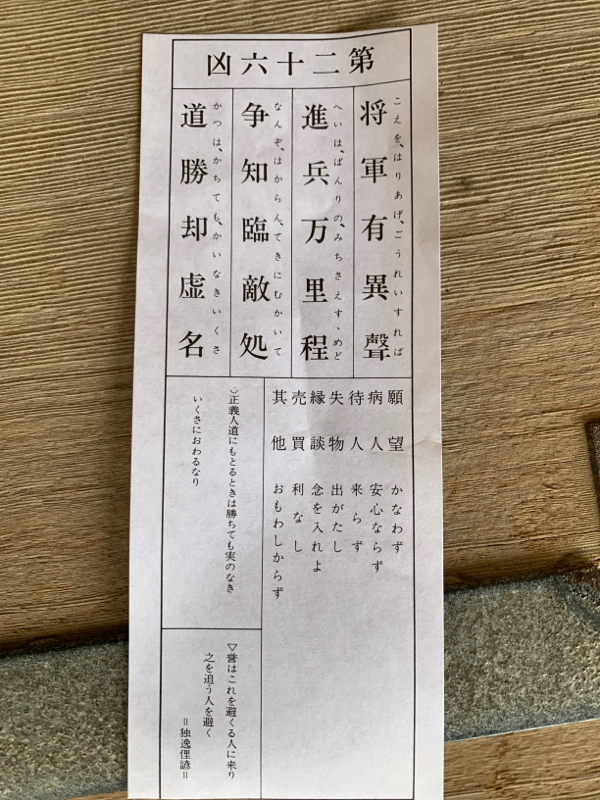 第二十六凶
将軍有異聲
こえを、はりあげ、ごうれいすれば
進兵万里程
へいは、ばんりの、みちさえす、めど
争知臨敵処
なんぞ、はからん、てきにむかいて
道勝却虚名
かつは、かちても、かいなきいくさ
願望 かなわず
病人 安心ならず
待人 来らず
失物 出がたし
縁談 念を入れよ
売買 利なし
其他 おもわしからず
◡正義人道にもとるときは勝ちても実のなき
いくさにおわるなり
▽誉はこれを避くる人に来り
之を追う人を避く
=独逸俚諺=